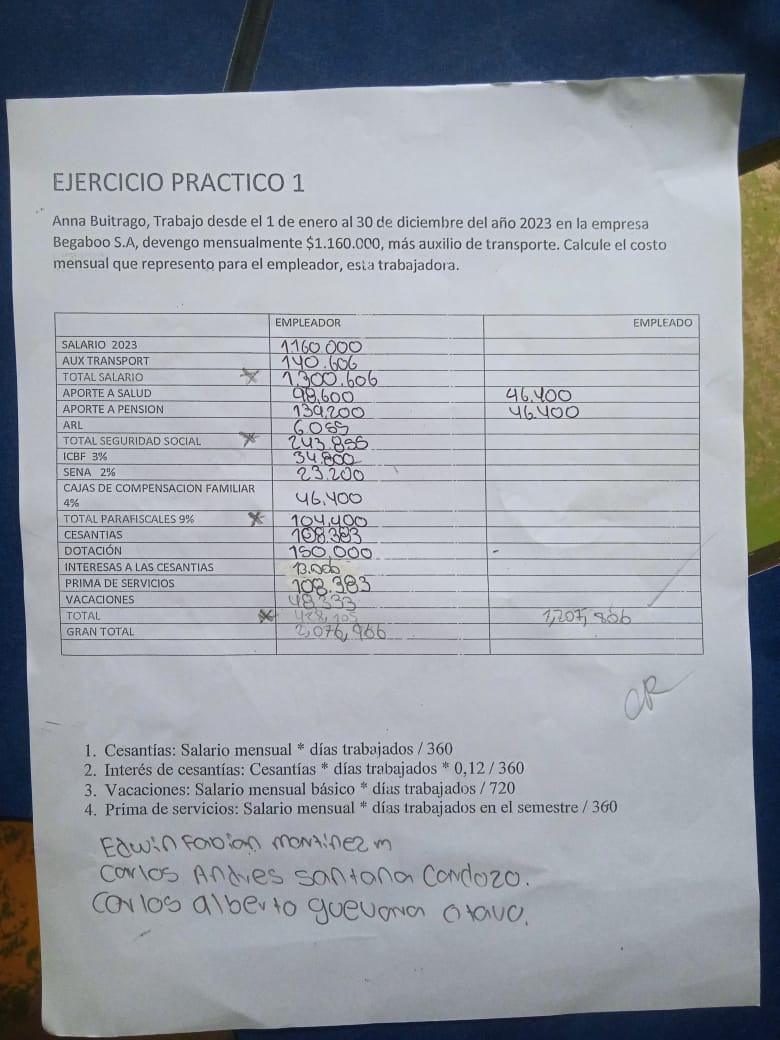 EJERCICIO PRACTICO 1
Anna Buitrago, Trabajo desde el 1 de enero al 30 de diciembre del año 2023 en la empresa
Begaboo S.A, devengo mensualmente $1.160.000, más auxilio de transporte. Calcule el costo
mensual que represento para el empleador, esta trabajadora.
EMPLEADOR EMPLEADO
SALARIO 2023 1160 000
AUX TRANSPORT 140.606
TOTAL SALARIO 1,300.606
APORTE A SALUD 98,600 46,400
APORTE A PENSION 139,200 46,400
ARL 6.055
TOTAL SEGURIDAD SOCIAL 243.855
ICBF 3% 34.800
SENA 2% 23.200
CAJAS DE COMPENSACION FAMILIAR
4% 46,400
TOTAL PARAFISCALES 9% 104,400
CESANTIAS 108.383
DOTACIÓN 150,000 -
INTERESAS A LAS CESANTIAS 13.000
PRIMA DE SERVICIOS 108.383
VACACIONES 48.333
TOTAL 428,105 1,207,806
GRAN TOTAL 2,076,966
CR
1. Cesantías: Salario mensual * días trabajados / 360
2. Interés de cesantías: Cesantías * días trabajados * 0,12 / 360
3. Vacaciones: Salario mensual básico * días trabajados / 720
4. Prima de servicios: Salario mensual * días trabajados en el semestre / 360
Edwin Fabian martinez m
Carlos Andres santana Cardozo.
Carlos alberto guevara otavo.